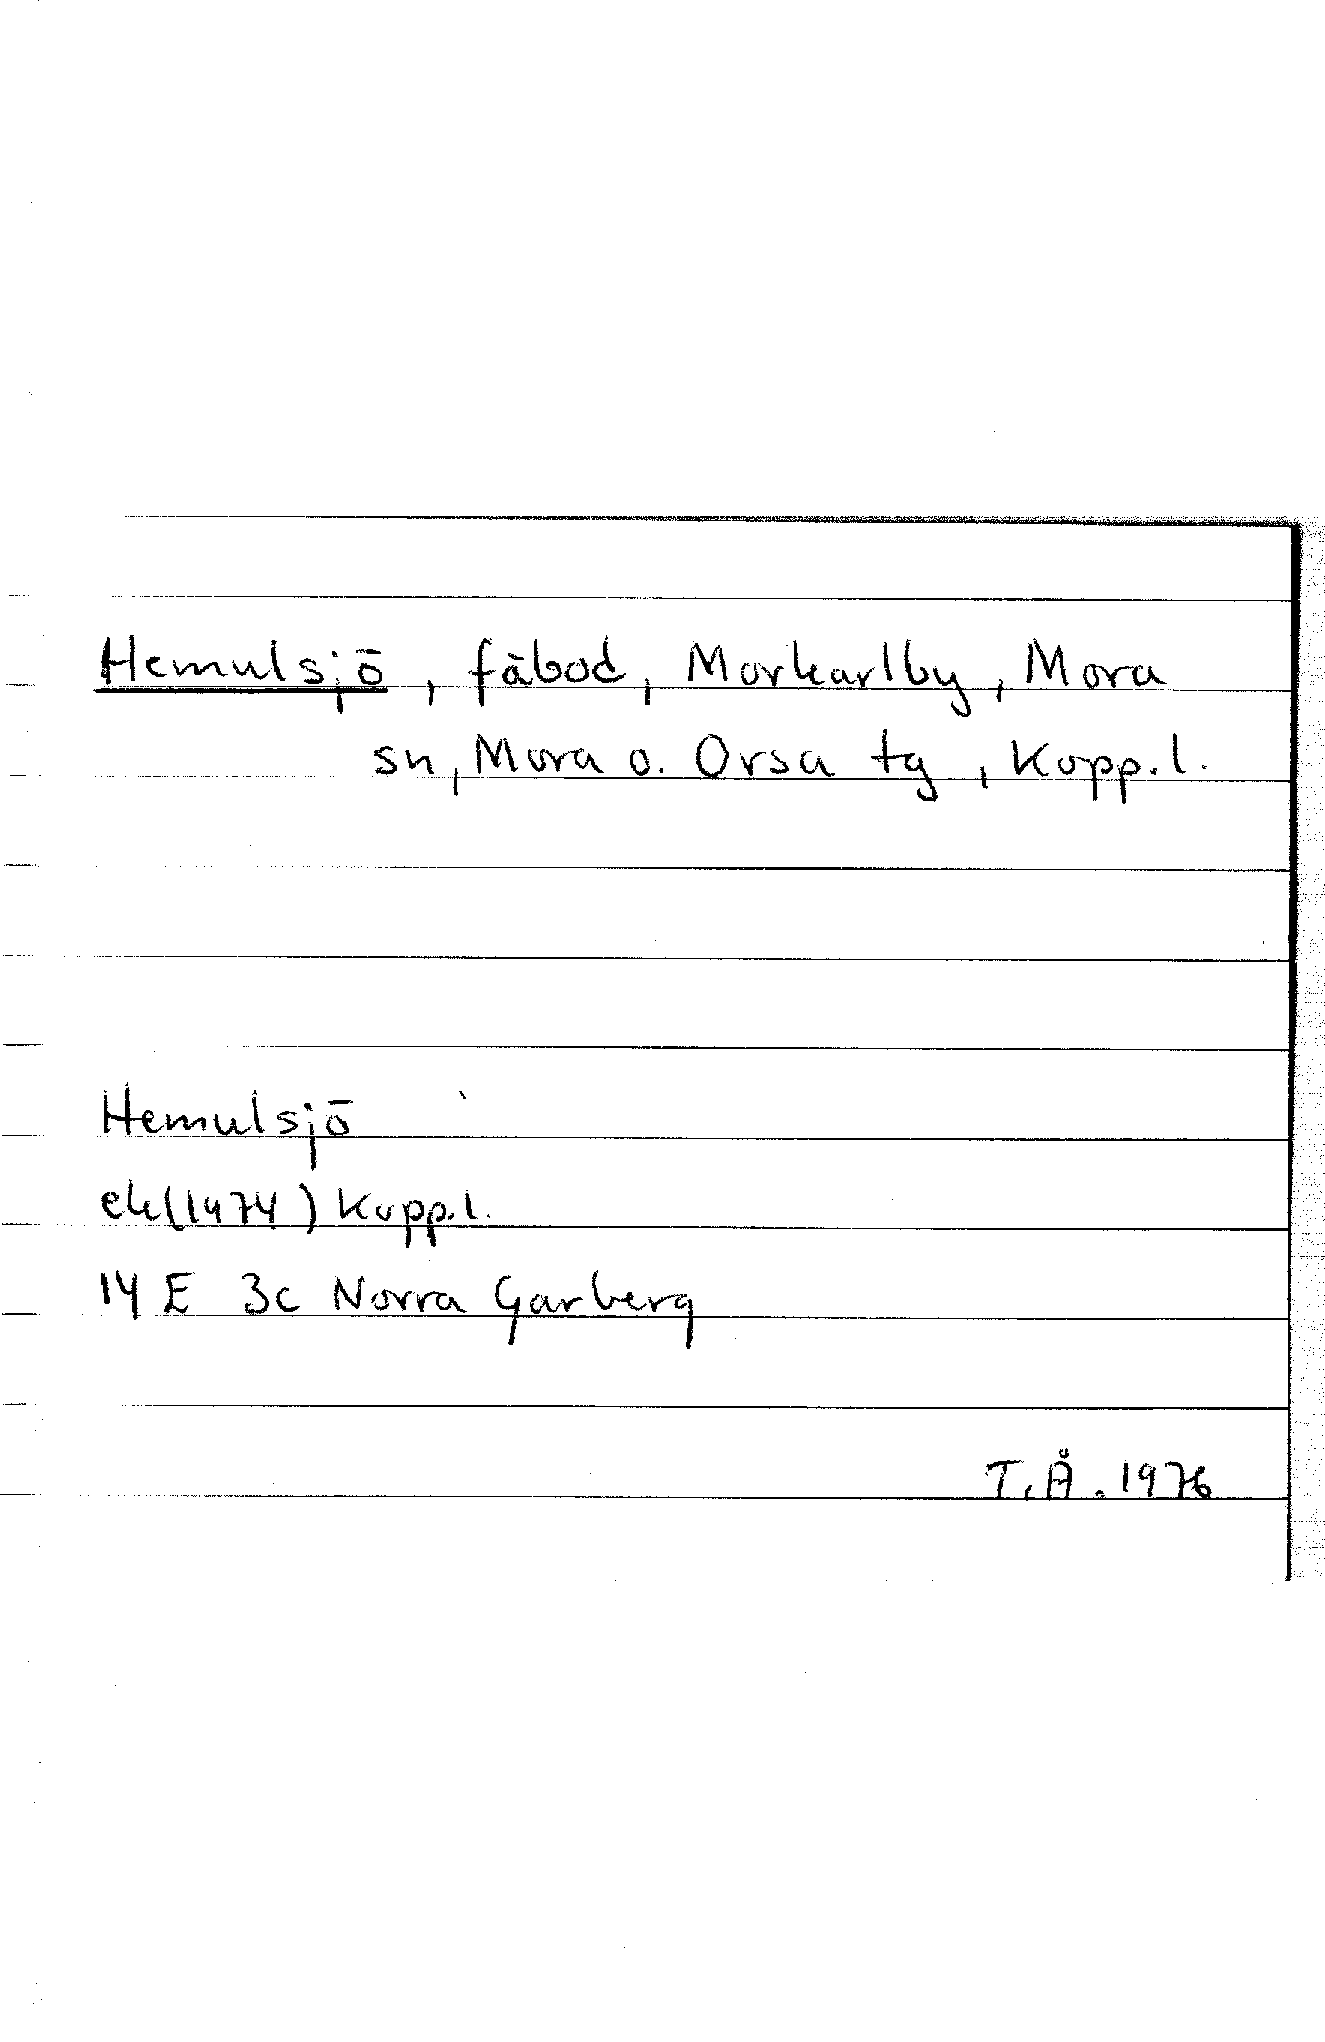 Hemulsjö, fäbod, Morkarlby, Mora
sn, Mora o. Orsa tg, Kopp.l.
Hemulsjö
ek (1974) Kopp.l.
14 E 3c Norra Garberg
T.Å. 1976